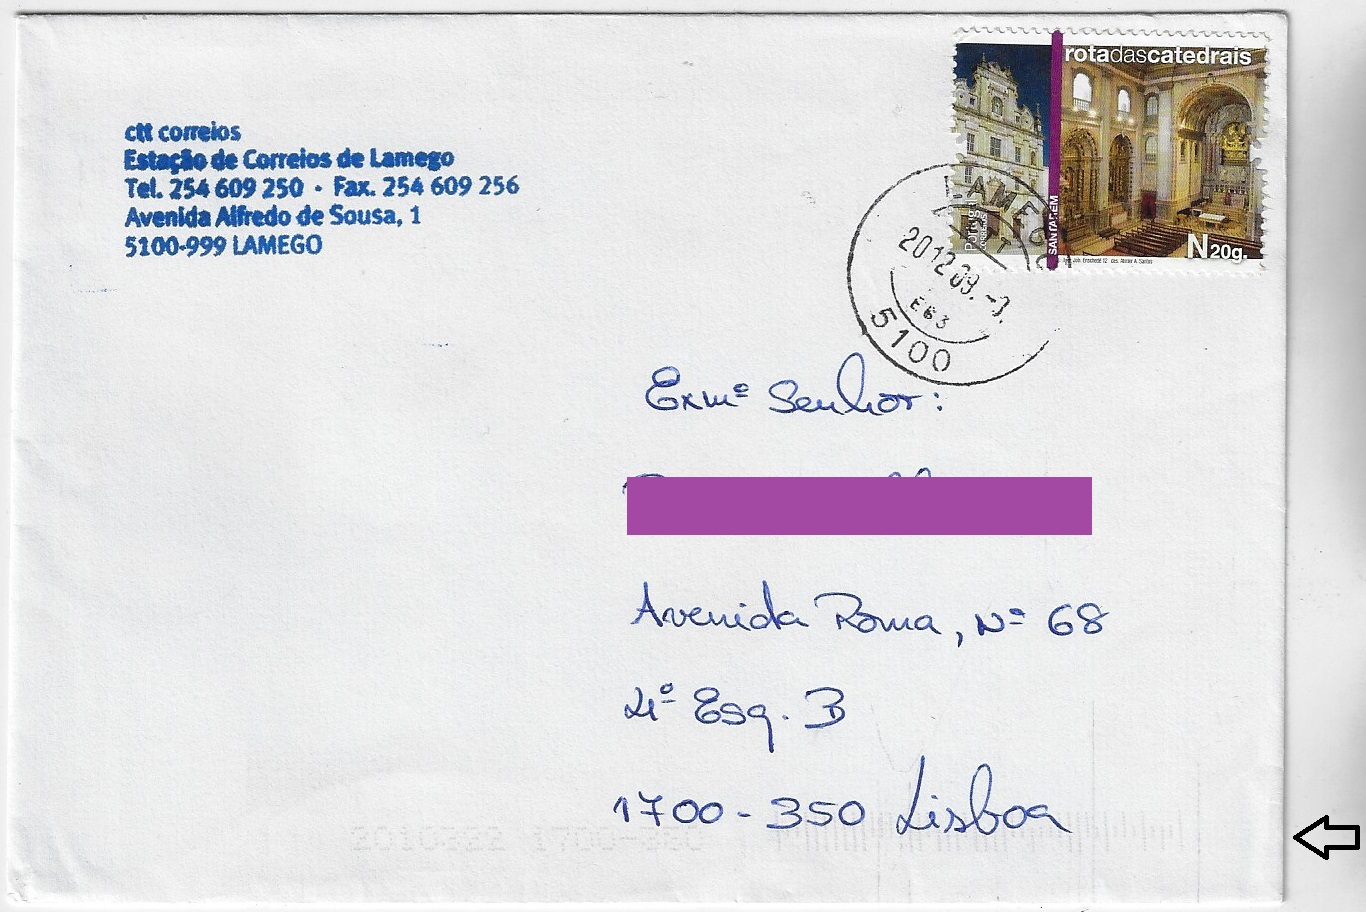 ctt correios
Estação de Correios de Lamego
Tel. 254 609 250 · Fax. 254 609 256
Avenida Alfredo de Sousa, 1
5100-999 LAMEGO
rotadascatedrais
Portugal
CORREIOS
SANTARÉM
N20g.
LAMEGO
2012 09.
E63
5100
Exmº Senhor:
Avenida Roma, Nº 68
4º Esq. B
1700-350 Lisboa